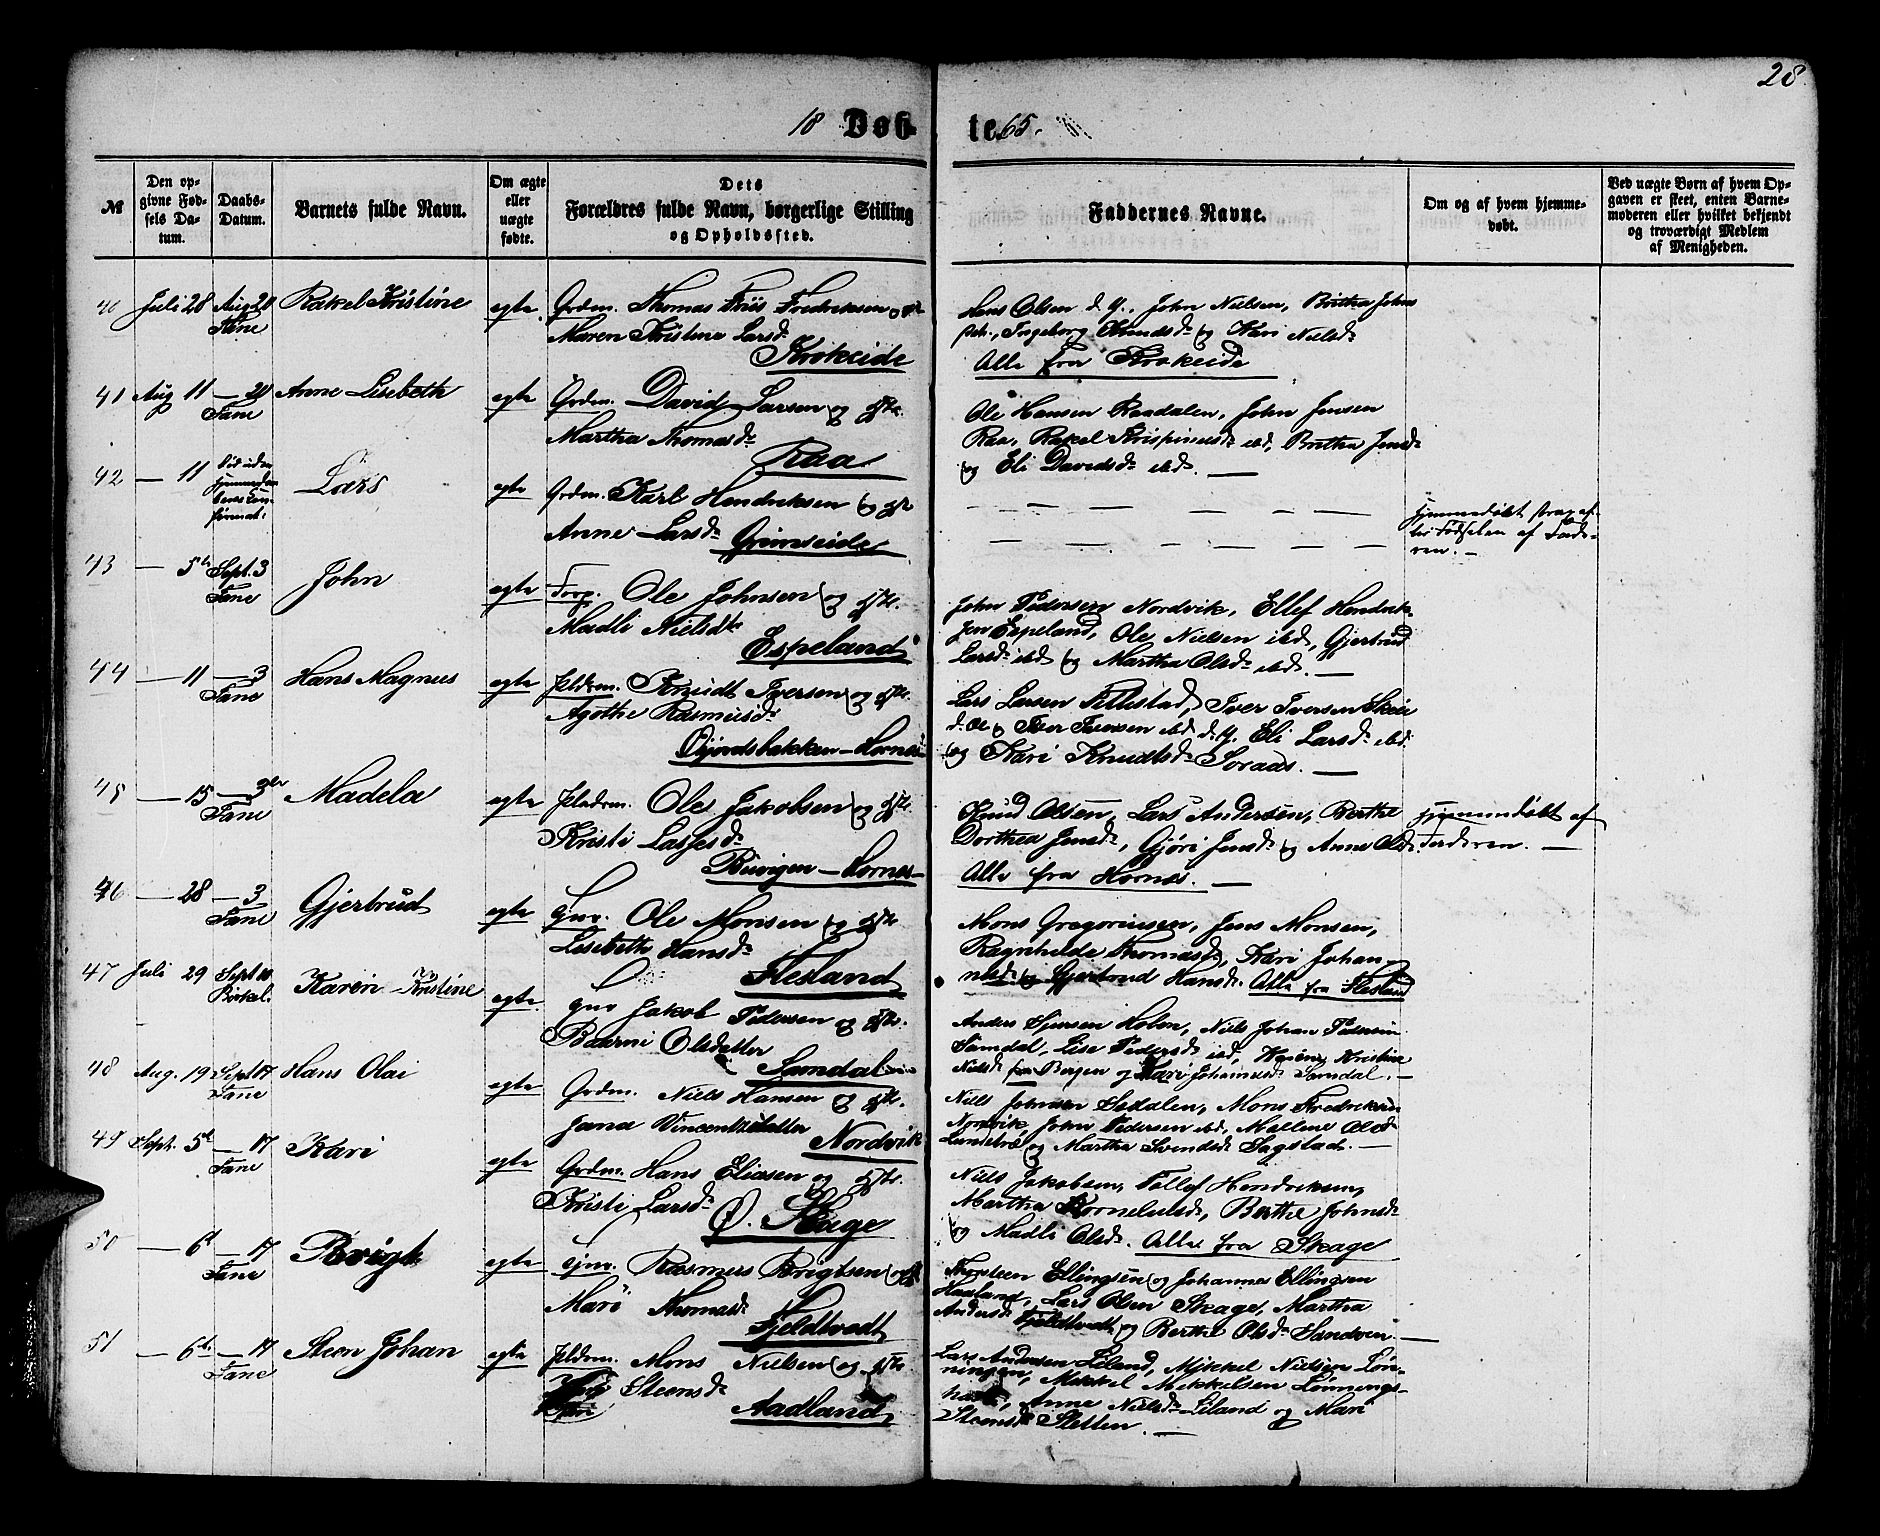 28
18 Døb- te 65.
№
Den op-
givne Fød-
sels Da-
tum.
Daabs-
Datum.
Barnets fulde Navn.
Om ægte
eller
uægte
fødte.
Dets
Forældres fulde Navn, borgerlige Stilling
og Opholdssted.
Faddernes Navne.
Om og af hvem hjemme-
døbt.
Ved uægte Børn af hvem Op-
gaven er skeet, enten Barne-
moderen eller hvilket bekjendt
og troværdigt Medlem
af Menigheden.
40 Juli 28 Aug 20 Rakel Kristine egte Grdm. Thomas Friis Fredriksen og
Fane
Maren Kristine Larsd.
Krokeide
Hans Olsen d. y., John Nielsen, Britha Johns
Ingeborg Knudsd. og Kari Nielsd.
Alle fra Krokeide
41 Aug 11 — 20 Anne Lisebeth egte Grdm. David Larsen og Hstr.
Fane
Martha Thomasd.
Raa
Ole Hansen Raadalen, John Jensen
Raa, Rakel Krispinusd. ibd, Britha Jensd.
og Eli Davidsd. ibd. —
42 — 11 Lars egte Grdm. Karl Hendriksen og Hstr
Død uden
Anne Larsd. Grimseide
hjemmedøbt strax ef-
ter Fødselen af Fade-
ren. —
43 — 5te Sept. 3 John egte Forp. Ole Johnsen og Hstr.
Fane
Madli Nielsdtr
Espeland
John Pedersen Nordvik, Ellef Hendrik-
sen Espeland, Ole Nielsen ibd, Gjertrud
Larsd. ibd og Martha Olsd. ibd. —
44 — 11 — 3 Hans Magnus egte Pldrm. Knudt Iversen og Hstr.
Fane
Agothe Rasmusd.
Hornes
Lars Larsen Tillestad, Iver Iversen Skeie
d. Æ og Iver Iversen ibd d. y. Eli Larsd. ibd.
og Kari Knudtsd. Soraas. —
45 — 15 — 3die Madela egte Pladrm. Ole Jakobsen og Hstr.
Fane
Kristi Lassesd.
Buvigen — Hornes —
Knud Olsen, Lars Andersen, Berthe
Dorthea Jensd., Gjøri Jensd. og Anne Olsd.
Alle fra Hornes. —
hjemmedøbt af
Faderen. —
46 — 28 — 3 Gjertrud egte Gmd. Ole Monsen og Hstr
Fane
Lisebeth Hansd.
Flesland
Mons Gregoriusen, Jens Monsen,
Ragnhilde Thomasd., Kari Johan-
nesd. og Gjertrud Hansd. Alle fra Flesland
47 Juli 29 Sept 10 Karen Kristine egte gmd Jakob Pedersen og Hstr.
Birkel.
Baarni Olsdatter
Samdal
Anders Sjursen Holen, Niels Johan Pedersen
Samdal, Lise Pedersd. ibd, Karen Kristine
Nielsd. fra Bergen og Kari Johannesd. Samdal. —
48 Aug. 19 Sept 17 Hans Olai egte Grdm. Niels Hansen og Hstr.
Fane
Jana Vincentsdatter
Nordvik
Niels Johnsen Sædalen, Mons Fredriksen
Nordvik, John Pedersen ibd, Mallene Olsd.
og Martha Svendsd. Sagstad. —
49 Sept. 5te — 17 Kari egte Grdm. Hans Eliasen og Hstr.
Fane
Kristi Larsd.
Ø. Skage
Niels Jakobsen, Tollef Hendriksen,
Martha Korneliusd., Berthe Johnsd.
og Madli Olsd. Alle fra Skage
50 — 6te — 17 Brigt egte Gmd. Rasmus Brigtsen og
Fane
Mari Thomasd.
Fjeldtvedt
Thorsteen Ellingsen og Johannes Ellingsen
Haaland, Lars Olsen Skage, Martha
Andersd. Fjeldtvedt og Berthe Olsd. Sandven —
51 — 6te — 17 Steen Johan egte Pldrm. Mons Nielsen og Hstr.
Fane
Steensd.
Aadland
Lars Andersen Liland, Mikkel Nielsen Løn-
ningen, Mikkel Mikkelsen Lønnings-
Anne Nielsd. Liland og Mari
Steensd. Sletten. —